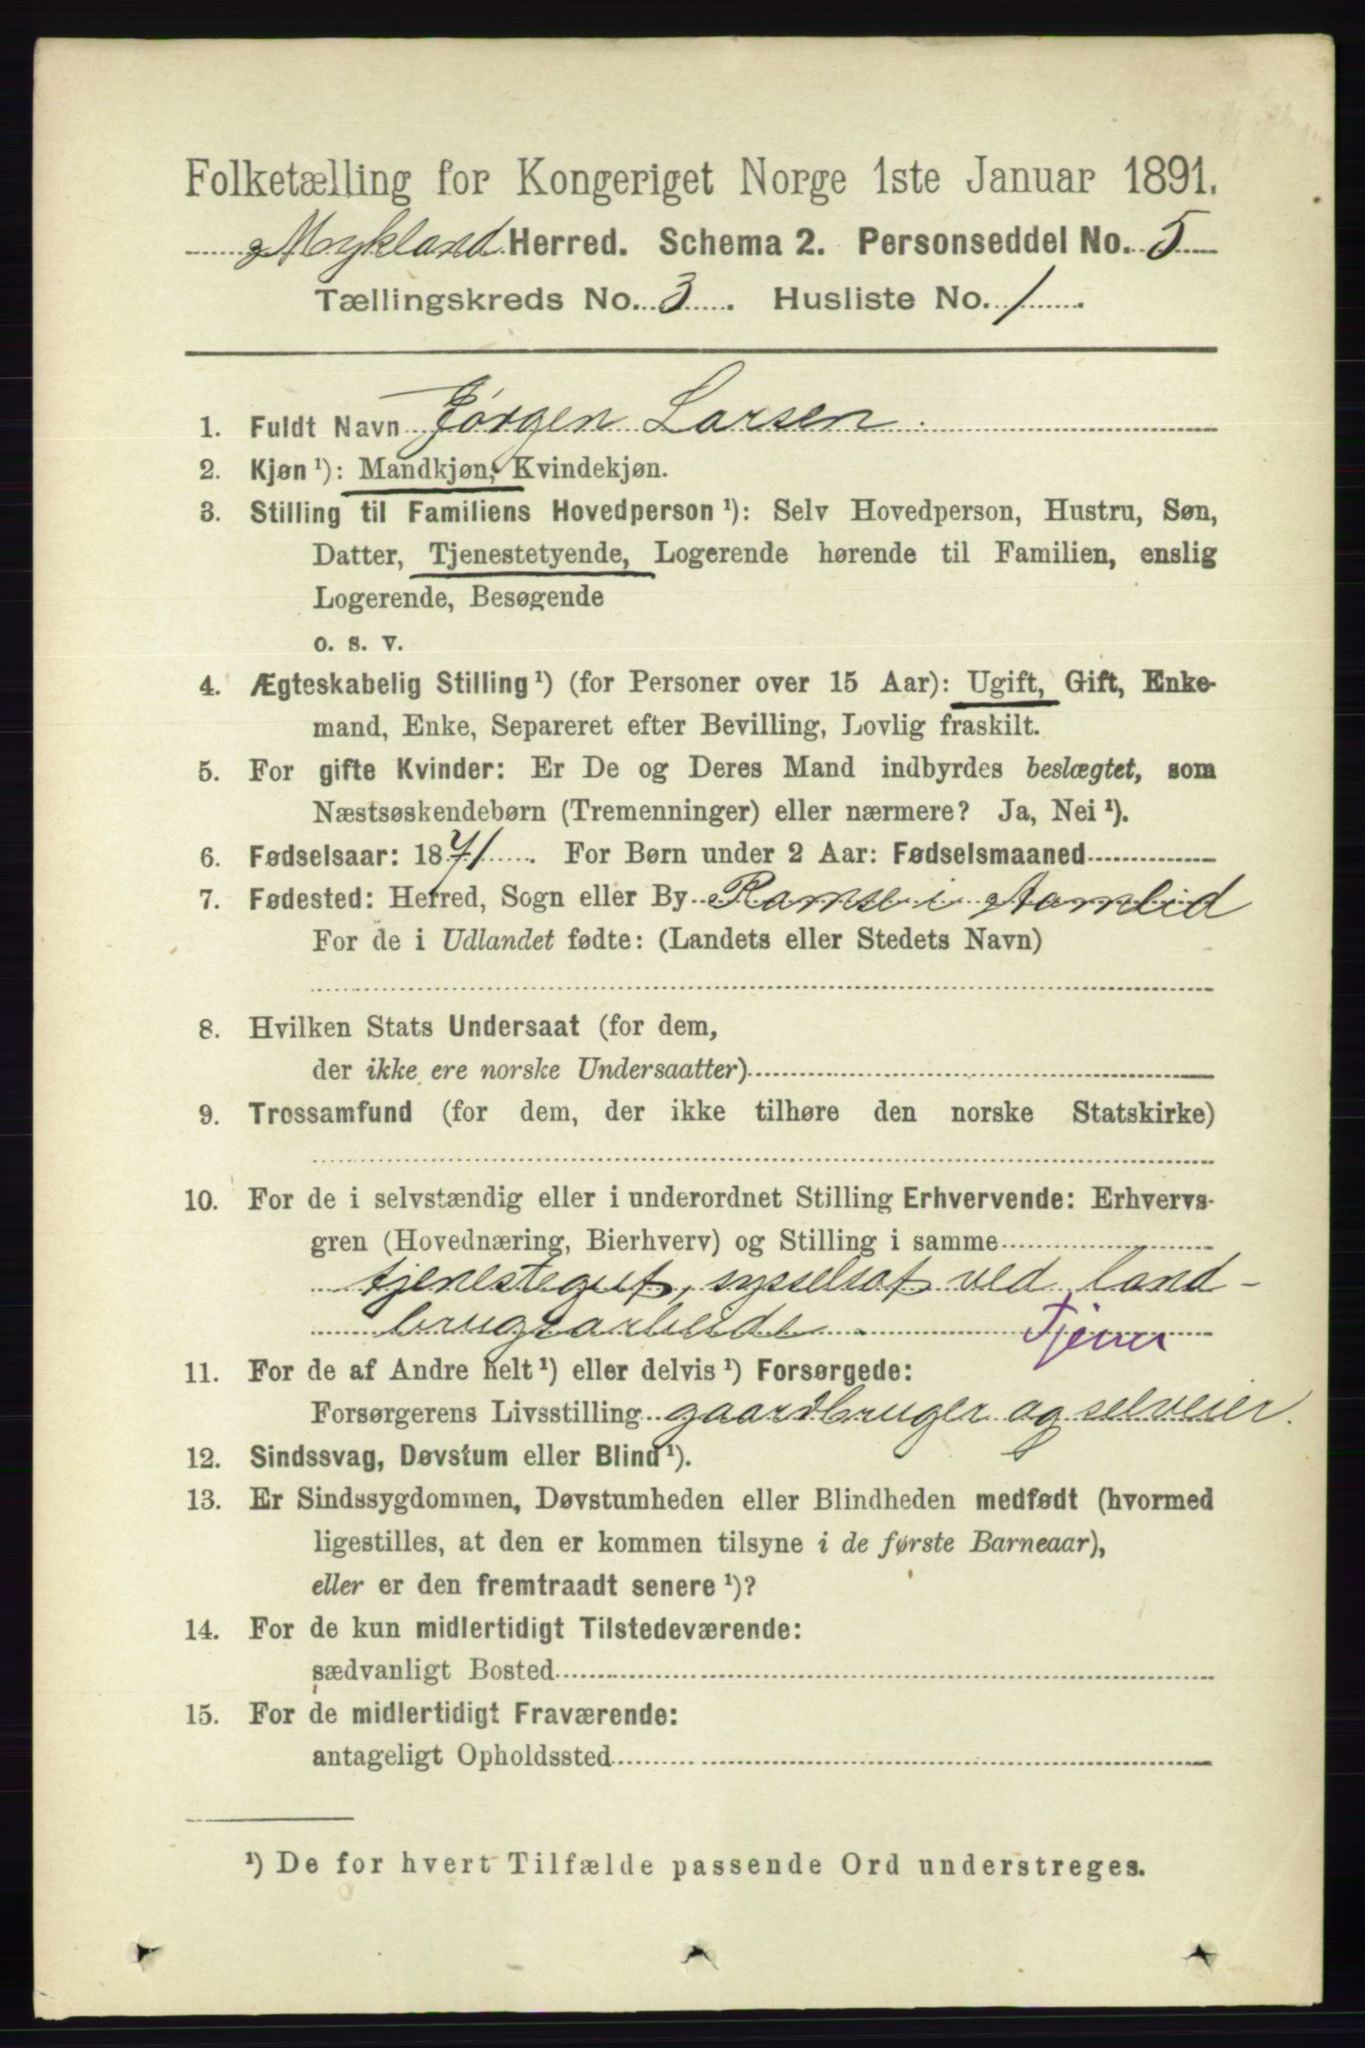 Folketælling for Kongeriget Norge 1ste Januar 1891.
Mykland Herred. Schema 2. Personseddel No. 5
Tællingskreds No. 3. Husliste No. 1.
1. Fuldt Navn Jørgen Larsen
2. Kjøn¹): Mandkjøn, Kvindekjøn.
3. Stilling til Familiens Hovedperson¹): Selv Hovedperson, Hustru, Søn,
Datter, Tjenestetyende, Logerende hørende til Familien, enslig
Logerende, Besøgende
o. s. v.
4. Ægteskabelig Stilling¹) (for Personer over 15 Aar): Ugift, Gift, Enke-
mand, Enke, Separeret efter Bevilling, Lovlig fraskilt.
5. For gifte Kvinder: Er De og Deres Mand indbyrdes beslægtet, som
Næstsøskendebørn (Tremenninger) eller nærmere? Ja, Nei¹).
6. Fødselsaar: 1871. For Børn under 2 Aar: Fødselsmaaned
7. Fødested: Herred, Sogn eller By Ramse i Aamlid
For de i Udlandet fødte: (Landets eller Stedets Navn)
8. Hvilken Stats Undersaat (for dem,
der ikke ere norske Undersaatter)
9. Trossamfund (for dem, der ikke tilhøre den norske Statskirke)
10. For de i selvstændig eller i underordnet Stilling Erhvervende: Erhvervs-
gren (Hovednæring, Bierhverv) og Stilling i samme
tjenestegut, sysselsat ved land-
brugsarbeide. Tjener
11. For de af Andre helt¹) eller delvis¹) Forsørgede:
Forsørgerens Livsstilling gaardbruger og selveier.
12. Sindssvag, Døvstum eller Blind¹).
13. Er Sindssygdommen, Døvstumheden eller Blindheden medfødt (hvormed
ligestilles, at den er kommen tilsyne i de første Barneaar),
eller er den fremtraadt senere¹)?
14. For de kun midlertidigt Tilstedeværende:
sædvanligt Bosted
15. For de midlertidigt Fraværende:
antageligt Opholdssted
¹) De for hvert Tilfælde passende Ord understreges.